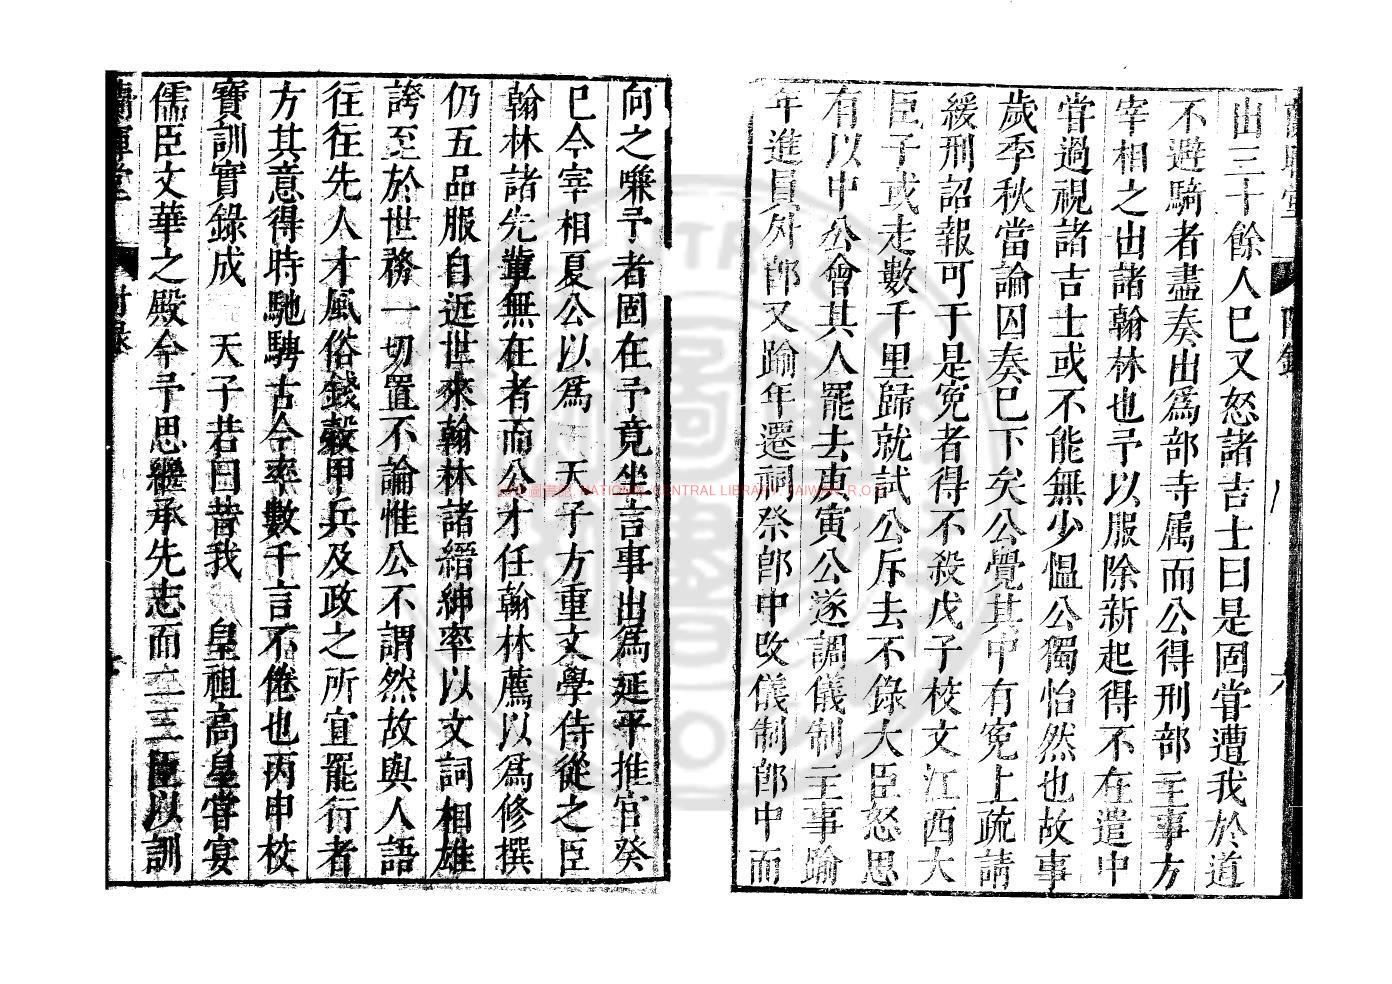 出三十餘人巳又怒諸吉士曰是固嘗遭我於道
不避騎者盡奏出爲部寺属而公得刑部主事方
宰相之出諸翰林也予以服除新起得不在遣中
嘗過視諸吉士或不能無少慍公獨怡然也故事
歲季秋當論囚奏巳下矣公覺其中有寃上疏請
緩刑詔報可于是寃者得不殺戊子校文江西大
臣子或走數千里歸就試公斥去不錄大臣怒思
有以中公會其人罷去庚寅公遂調儀制主事踰
年進員外郎又踰年遷祠祭郎中攺儀制郎中而
向之嗛予者固在予竟坐言事出爲延平推官癸
巳今宰相夏公以爲 天子方重文學侍從之臣
翰林諸先軰無在者而公才任翰林薦以爲修撰
仍五品服自近世來翰林諸縉紳率以文詞相雄
誇至於世務一切置不論惟公不謂然故與人語
往往先人才風俗錢穀甲兵及政之所宜罷行者
方其意得時馳騁古今率數千言不倦也丙申校
寶訓實錄成 天子若曰昔我 皇祖高皇嘗宴
儒臣文華之殿今予思繼承先志而二三臣以訓
附錄